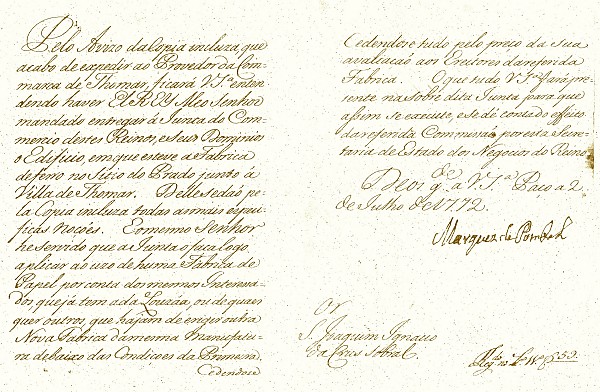 Pelo Avizo da Copia incluza, que
acabo de expedir ao Provedor da Com-
marca de Thomar, ficará V. S.ª enten-
dendo haver ELREY Meo Senhor
mandado entregar á Junta do Com-
mercio destes Reinos, e seus Dominios
o Edificio, em que esteve a Fabrica
de ferro no Sitio do Prado junto á
Villa de Thomar. Delle se dão pe-
la Copia incluza todas as mais especi-
ficas noções. E o mesmo Senhor
he servido que a Junta o faça logo
applicar ao uzo de huma Fabrica de
Papel por conta dos mesmos Interessa-
dos que já tem a da Louzãa, ou de quaes
quer outros, que hajam de erigir outra
Nova Fabrica da mesma Manufactu-
ra debaixo das Condições da Primeira.
Cedendose
Cedendose tudo pelo preço da sua
avaliação aos Erectores da referida
Fabrica. O que tudo V. S.ª fará pre-
zente na sobredita Junta para que
assim se execute, e se dê conta do effeito
da referida Commissão por esta Secre-
taria de Estado dos Negocios do Reino.
Deos g.de a V. S.ª Paço a 2
de Julho de 1772.
Marquez de Pombal
S.r Joaquim Ignacio
da Crus Sobral.